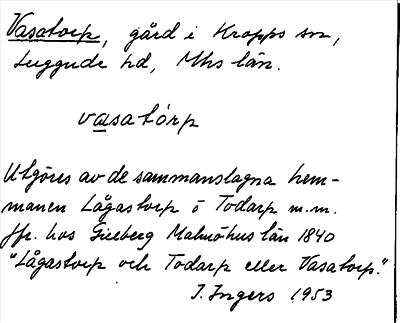 Vasatorp, gård i Kropps sn,
Luggude hd, Mhs län.
vasatórp
Utgöres av de sammanslagna hem-
manen Lågastorp o Todarp m.m.
Jfr. hos Gileberg Malmöhus län 1840
"Lågastorp och Todarp eller Vasatorp."
I. Ingers 1953